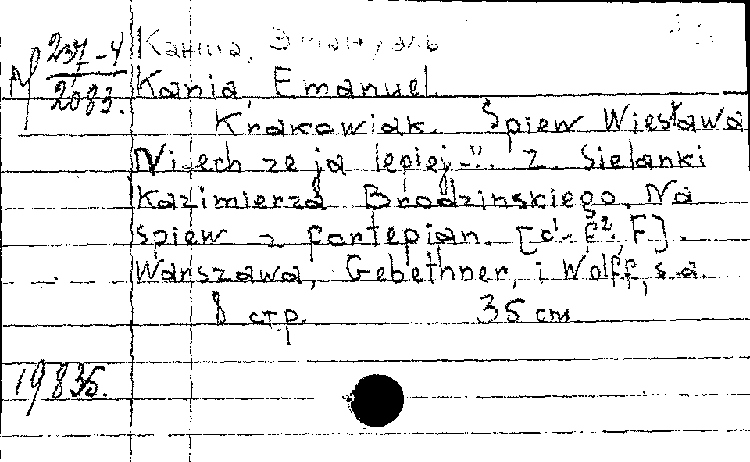 М 237-4
2083.
Каниа, Эмануэль
Kania, Emanuel.
Krakowiak. Śpiew Wiesława
"Niech że ja lepiej-". Z Sielanki
Kazimierza Brodzinskiego. Na
śpiew z fortepian.
Warszawa, Gebethner, i Wolff, s.a.
8 стр. 35 cm
19835.